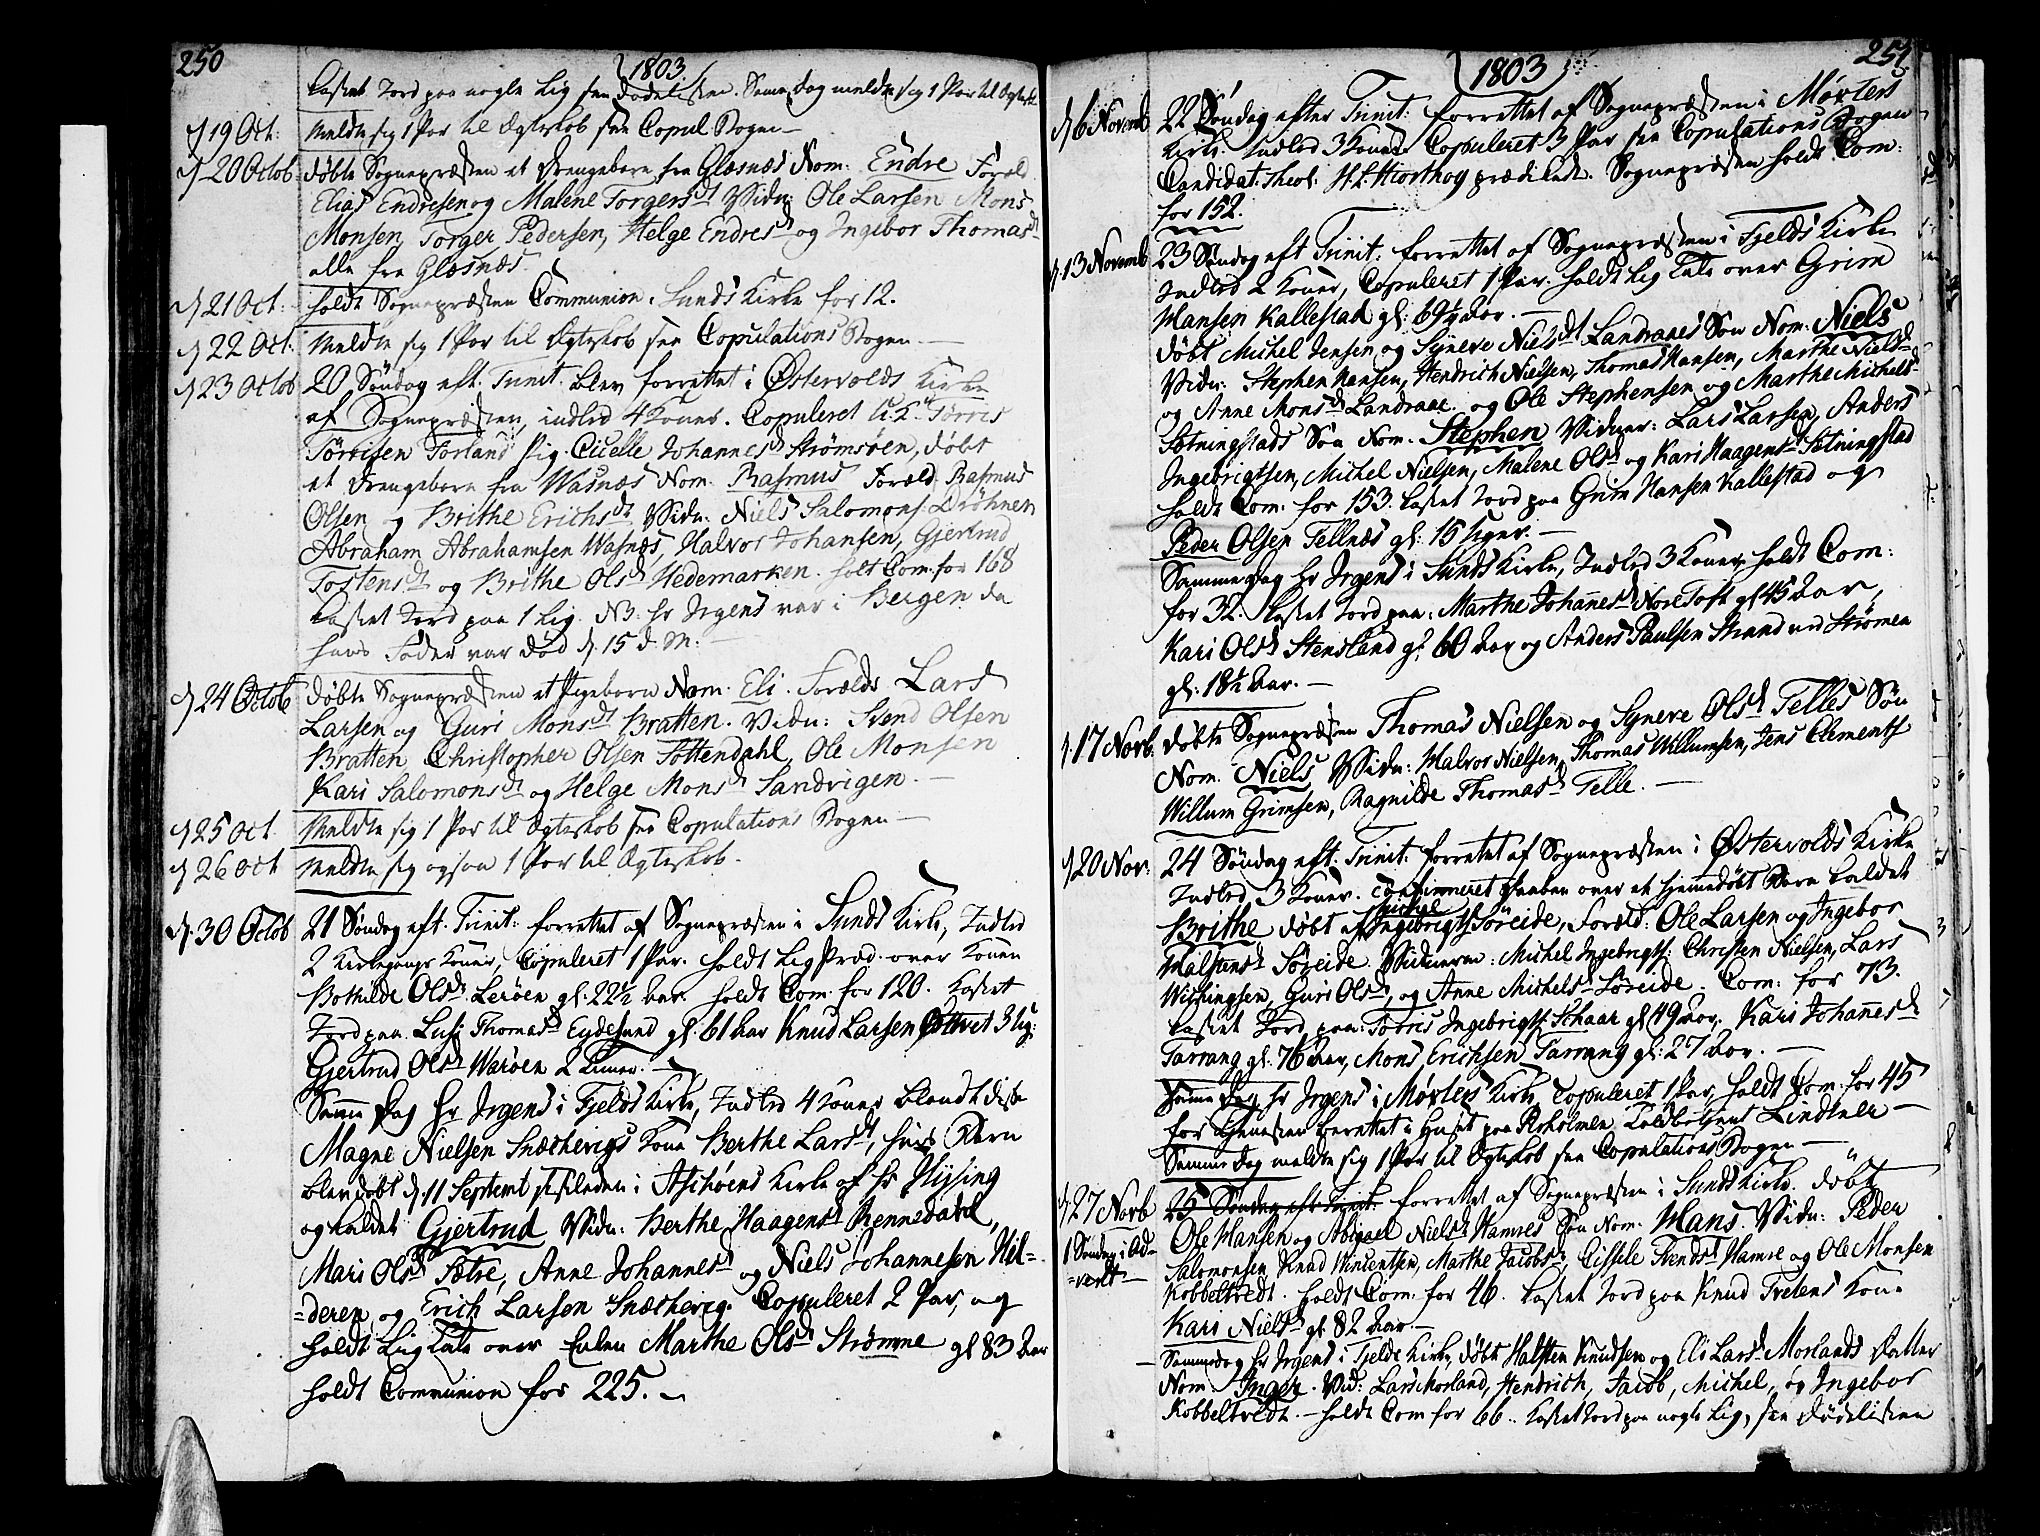 250
1803.
Kastet Jord paa nogle Lig see Dødelisten. Samme Dag meldte sig 1 Par til Ægtesk.
d 19 Oct: Meldte sig 1 Par til Ægteskab see Copul Bogen —
d 20 Octob: døbte Sognepræsten et Drengebarn fra Glæsnæs Nom: Endre Foræld.
Elias Endresen og Malene Torgersdt Vidn: Ole Larsen Mons
Monsen, Torger Pedersen, Helge Endresdt og Ingebor Thomasdt
alle fra Glæsnæs.
d 21 Oct: holdt Sognepræsten Communion i Sunds Kirke for 12.
d 22 Oct: Meldte sig 1 Par til Ægteskab see Copulations Bogen —
d 23 Octob 20 Søndag eft. Trinit. blev forrettet i Østervolds Kirke
af Sognepræsten, indled 4 Koner. Copuleret U.K. Torris
Torrisen Torland Pig. Cicelle Johannesdt Strømsøen, døbt
et Drengebarn fra Wasnæs Nom. Rasmus Foræld: Rasmus
Olsen og Brithe Erichsdt Vidn: Niels Salomons: Drøhnen
Abraham Abrahamsen Wasnæs, Halvor Johansen, Gjertrud
Tostensdt og Brithe Olsdt Hedemarken. holt Com: for 168
Kastet Jord paa 1 Lig. NB. Hr Irgens var i Bergen da
hans Fader var død d. 15 d. M: —
d 24 Octob døbte Sognepræsten et Pigebarn Nom. Eli. Forælds Lars
Larsen og Guri Monsdt Bratten. Vidn: Svend Olsen
Bratten Christopher Olsen Tottendahl, Ole Monsen
Kari Salomonsdt og Helge Monsdt Sandvigen. —
d 25 Oct Meldte sig 1 Par til Ægteskab see Copulations Bogen —
d 26 Oct Meldte sig ogsaa 1 Par til Ægteskab.
d. 30 Octob 21 Søndag eft. Trinit: forrettet af Sognepræsten i Sunds Kirke, Indled
2 Kirkegangs Koner, Copuleret 1 Par. holdt Lig Præd. over Konen
Bothilde Olsdt Lerøen gl: 22½ Aar. holdt Com. for 120. Kastet
Jord paa Lusi Thomasdt Eydesund gl: 61 Aar Knud Larsen 3 Ug:
Gjertrud Olsdt Warøen 2 Timer. —
Samme Dag Hr Irgens i Fjelds Kirke, Indled 4 Koner blandt disse
Magne Nielsen Snæckevigs Kone Berthe Larsdt, hvis Barn
blev døbt d. 11 Septemt i Aschøens Kirke af Hr Hysing
og kaldet Gjertrud Vidn: Berthe Haagensdt Rennedahl,
Mari Olsdt Sætre, Anne Johannesdt og Niels Johannesen Hil=
=deren og Erich Larsen Snæckevig. Copuleret 2 Par, og
holdt Lig Tale over Enken Marthe Olsdt Strømme gl 83 Aar
holdt Communion for 225. —
251
1803
d 6 Novemb 22 Søndag efter Trinit: forrettet af Sognepræsten i Møvters
Kirke. Indled 3 Koner. Copuleret 3 Par see Copulations Bogen
Candidat: Theol. H. L. Hiorthøg prædikede. Sognepræsten holdt Com:
for 152.
d. 13 Novemb 23 Søndag eft Trinit: forrettet af Sognepræsten i Fjelds Kirke
Indled 2 Koner, Copuleret 1 Par. holdt Lig Tale over Grim
Hansen Kallestad gl: 69½ Aar. —
døbt Michel Jensen og Syneve Nielsdt Landraaes Søn Nom: Niels
Vidn: Stephen Hansen, Hendrich Nielsen, Thomas Hansen, Marthe Nielsdt
og Anne Monsdt Landraae. og Ole Stephensen og Marthe Michelsdt
Søtningstads Søn Nom. Stephen Vidner: Lars Larsen, Anders
Ingebrigtsen, Michel Nielsen, Malene Olsdt og Kari Haagensdt Søtningstad
holdt Com. for 153. Kastet Jord paa Grim Hansen Kallestad og
Peder Olsen Tellnæs gl: 15 Uger. —
Samme Dag Hr Irgens i Sunds Kirke, Indled 3 Koner, holdt Com:
for 32. Kastet Jord paa: Marthe Johannesdt Nore Toft gl 45 Aar,
Kari Olsdt Stensland gl. 60 Aar og Anders Paulsen Strand ved Strømen
gl: 18½ Aar. —
d. 17 Novb. døbte Sognepræsten Thomas Nielsen og Syneve Olsdt Telles Søn
Nom. Niels Vidn: Halvor Nielsen, Thomas Willumsen, Jens Clements
Willum Grimsen, Ragnilde Thomasdt Telle. —
d 20 Nov: 24 Søndag eft. Trinit: forrettet af Sognepræsten i Østervolds Kirke
Indled 3 Koner. confirmeret Daaben over et hjemmedøbt Barn kaldet
Brithe døbt af Michel Ingebrigts Søreide, Foræld: Ole Larsen og Ingebor
Halstensdt Søreide. Vidnerne: Michel Ingebrigts: Christen Nielsen, Lars
Wichingsen, Guri Olsdt, og Anne Michelsdt Søreide. Com: for 73.
Kastet Jord paa: Torris Ingebrigts: Schaar gl 49 Aar, Kari Johannesdt
Tarrang gl. 76 Aar, Mons Erichsen Tarrang gl: 27 Aar. —
Samme Dag Hr Irgens i Møvters Kirke, Copuleret 1 Par, holdt Com: for 45
for berettet i Huset paa Roholmen Toldbetjent Lindtner —
Samme Dag meldte sig 1 Par til Ægteskab see Copulations Bogen —
d 27 Novb 25 Søndag eft Trinit: forrettet af Sognepræsten i Sunds Kirke. døbt
1 Søndag i Ad= Ole Hansen og Abigael Nielsdt Hamres Søn Nom: Hans. Vidn: Peder
=vent — Salomonsen, Knud Wincentsen, Marthe Jacobsdt, Cissele Svendsdt Hamre og Ole Monsen
Kobbeltvedt. holdt Com. for 46. Kastet Jord paa Knud Tvetens Kone
Kari Nielsdt gl. 82 Aar. —
Samme dag Hr Irgens i Fjelds Kirke, døbt Halsten Knudsen og Eli Larsdt Morlands Datter
Nom. Inger. Vid: Lars Morland, Hendrich, Jacob, Michel, og Ingebor
Kobbeltvedt. — holdt Com for 66. Kastet Jord paa nogle Lig, see Dødelisten